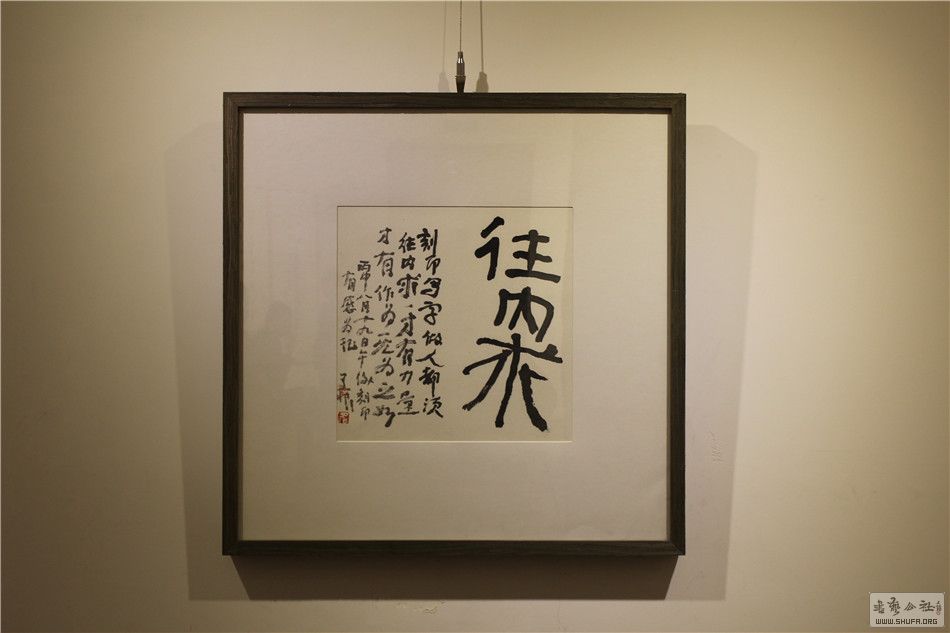 往内求
刻印写字做人都须
往内求才有力量
才有作为无为之
丙申八月十九日午后刻印
有感为记
书艺公社
WWW.SHUFA.ORG